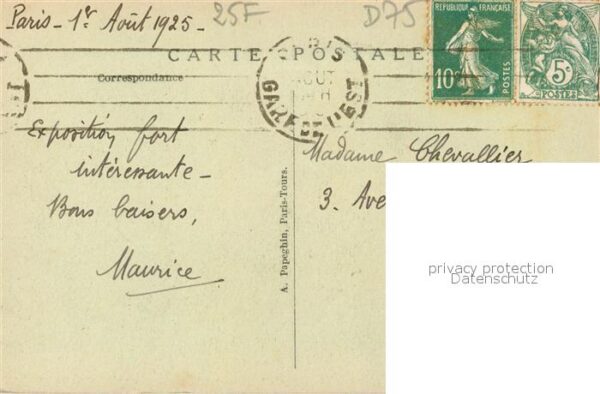 Paris - 1er Août 1925 -
25F
D75
CARTE POSTALE
Correspondance
PARIS
AOUT
GARE DE L'EST
RÉPUBLIQUE FRANÇAISE
10c
POSTES
5c
POSTES
Exposition fort
intéressante -
Bons baisers,
Maurice
A. Papeghin, Paris-Tours.
Madame Chevallier
3. Ave
privacy protection
Datenschutz